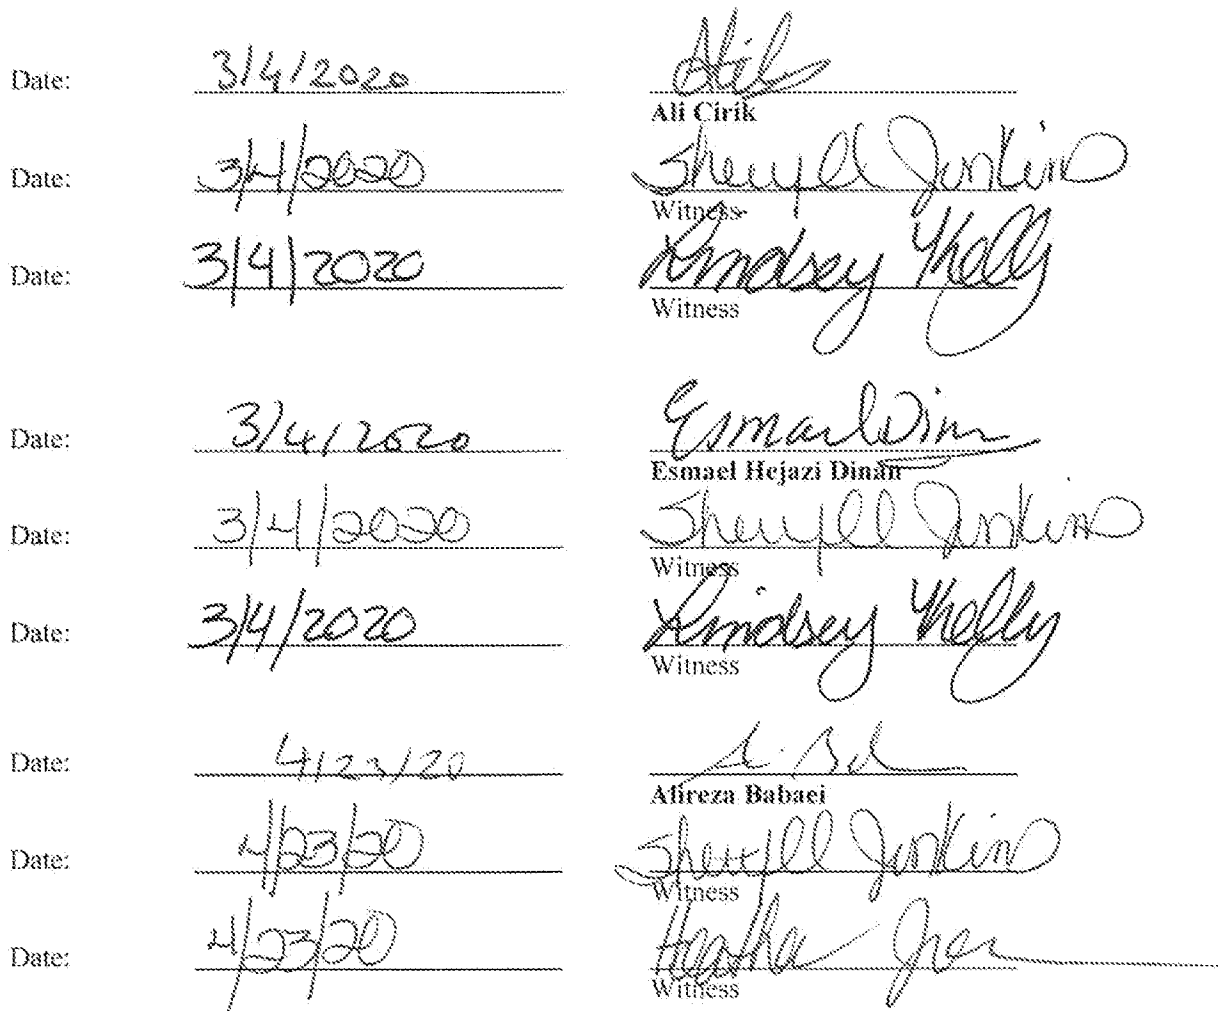 Date: 3/4/2020
Ali Cirik
Date: 3/4/2020 Sheryll Junkins
Witness
Date: 3/4/2020 Lindsey Kelly
Witness
Date: 3/4/2020 Esmael Dinan
Esmael Hejazi Dinan
Date: 3/4/2020 Sheryll Junkins
Witness
Date: 3/4/2020 Lindsey Kelly
Witness
Date: 4/23/20
Alireza Babaei
Date: 4/23/20 Sheryll Junkins
Witness
Date: 4/23/20 Heather
Witness